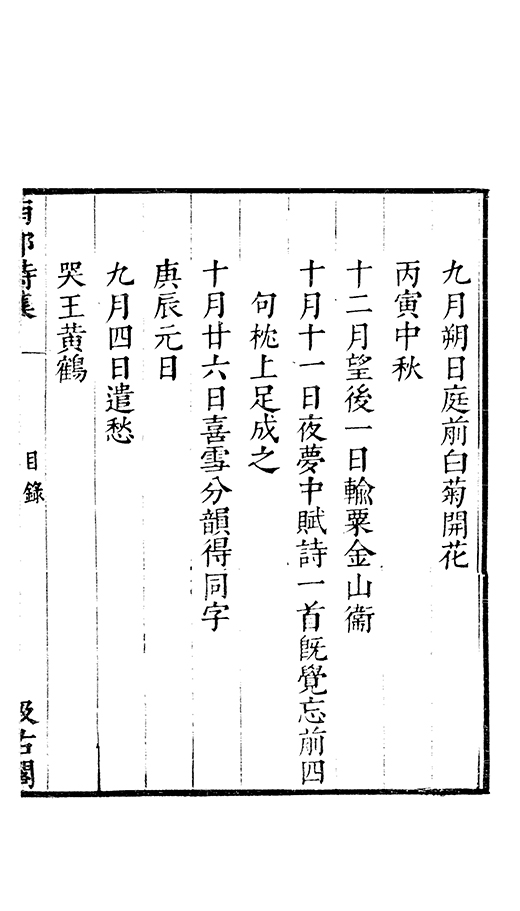 九月朔日庭前白菊開花
丙寅中秋
十二月望後一日輸粟金山衞
十月十一日夜夢中賦詩一首旣覺忘前四
句枕上足成之
十月廿六日喜雪分韻得同字
庚辰元日
九月四日遣愁
哭王黃鶴
詩集
目錄
汲古閣